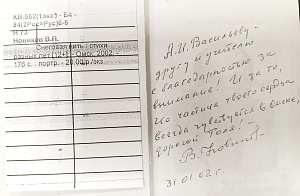 КВ-562(1экз.) - Б4 -
84(2Рос=Рус)6-5
Н 73
Новиков В.П.
Снеговая нить : стихи
разных лет (12+). - Омск, 2002. -
176 с. : портр. - 20,00р./экз.
А.И. Васильеву -
другу и учителю
с благодарностью за
внимание! И за то,
что частица твоего сердца
всегда чувствуется в Омске,
дорогой Толя! -
В. Новиков
31.01.02 г.